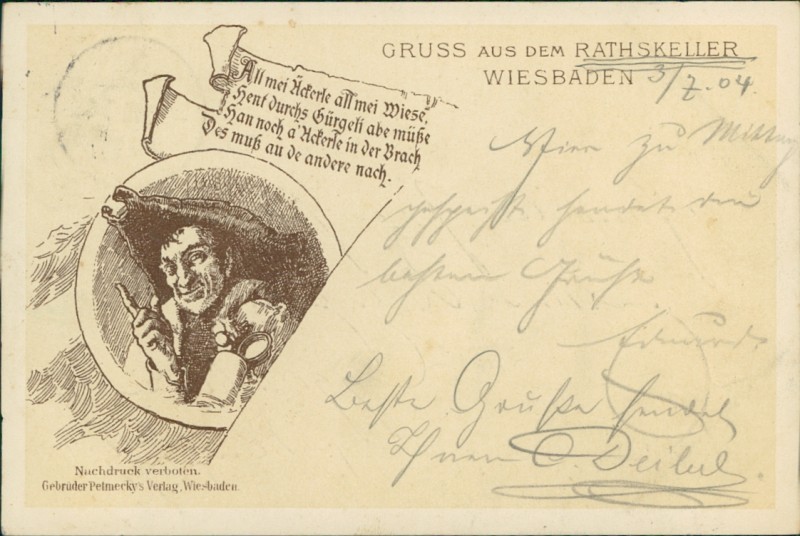 GRUSS AUS DEM RATHSKELLER
WIESBADEN 3/7.04.
All mei Äckerle all mei Wiese,
Hent durchs Gürgeli abe müße
Han noch a' Äckerle in der Brach
Des muß au de andere nach.
Hier zu Mittag
gespeist sendet den
besten Grüße
Beste Grüße sendet
Ihnen C.
Nachdruck verboten.
Gebrüder Petmecky's Verlag, Wiesbaden.